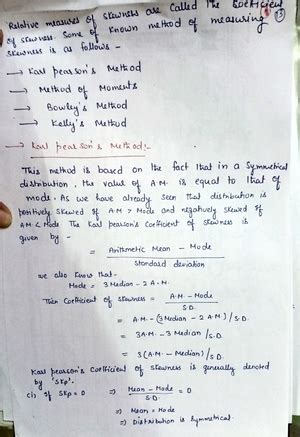 Relative measures of skewness are called the coefficient
of skewness. Some of known method of measuring
skewness is as follows -
→ Karl pearson's Method
→ Method of Moments
→ Bowley's Method
→ Kelly's Method
→ Karl pearson's Method:-
This method is based on the fact that in a Symmetrical
distribution, the value of A.M. is equal to that of
mode. As we have already seen that distribution is
positively skewed if A.M > Mode and negatively skewed if
A.M < Mode The Karl pearson's Coefficient of skewness is
given by -
= Arithmetic Mean - Mode
Standard deviation
we also know that-
Mode = 3 Median - 2 A.M.
Then Coefficient of Skewness = A.M - Mode
S.D.
= A.M - (3 Median - 2 A.M) / S.D.
= 3 A.M - 3 Median / S.D.
= 3 (A.M - Median) / S.D.
Karl pearson's Coefficient of skewness is generally denoted
by 'SKp'.
(i) if SKp = 0 ⇒ Mean - Mode = 0
S.D.
⇒ Mean = Mode
⇒ Distribution is Symmetrical.